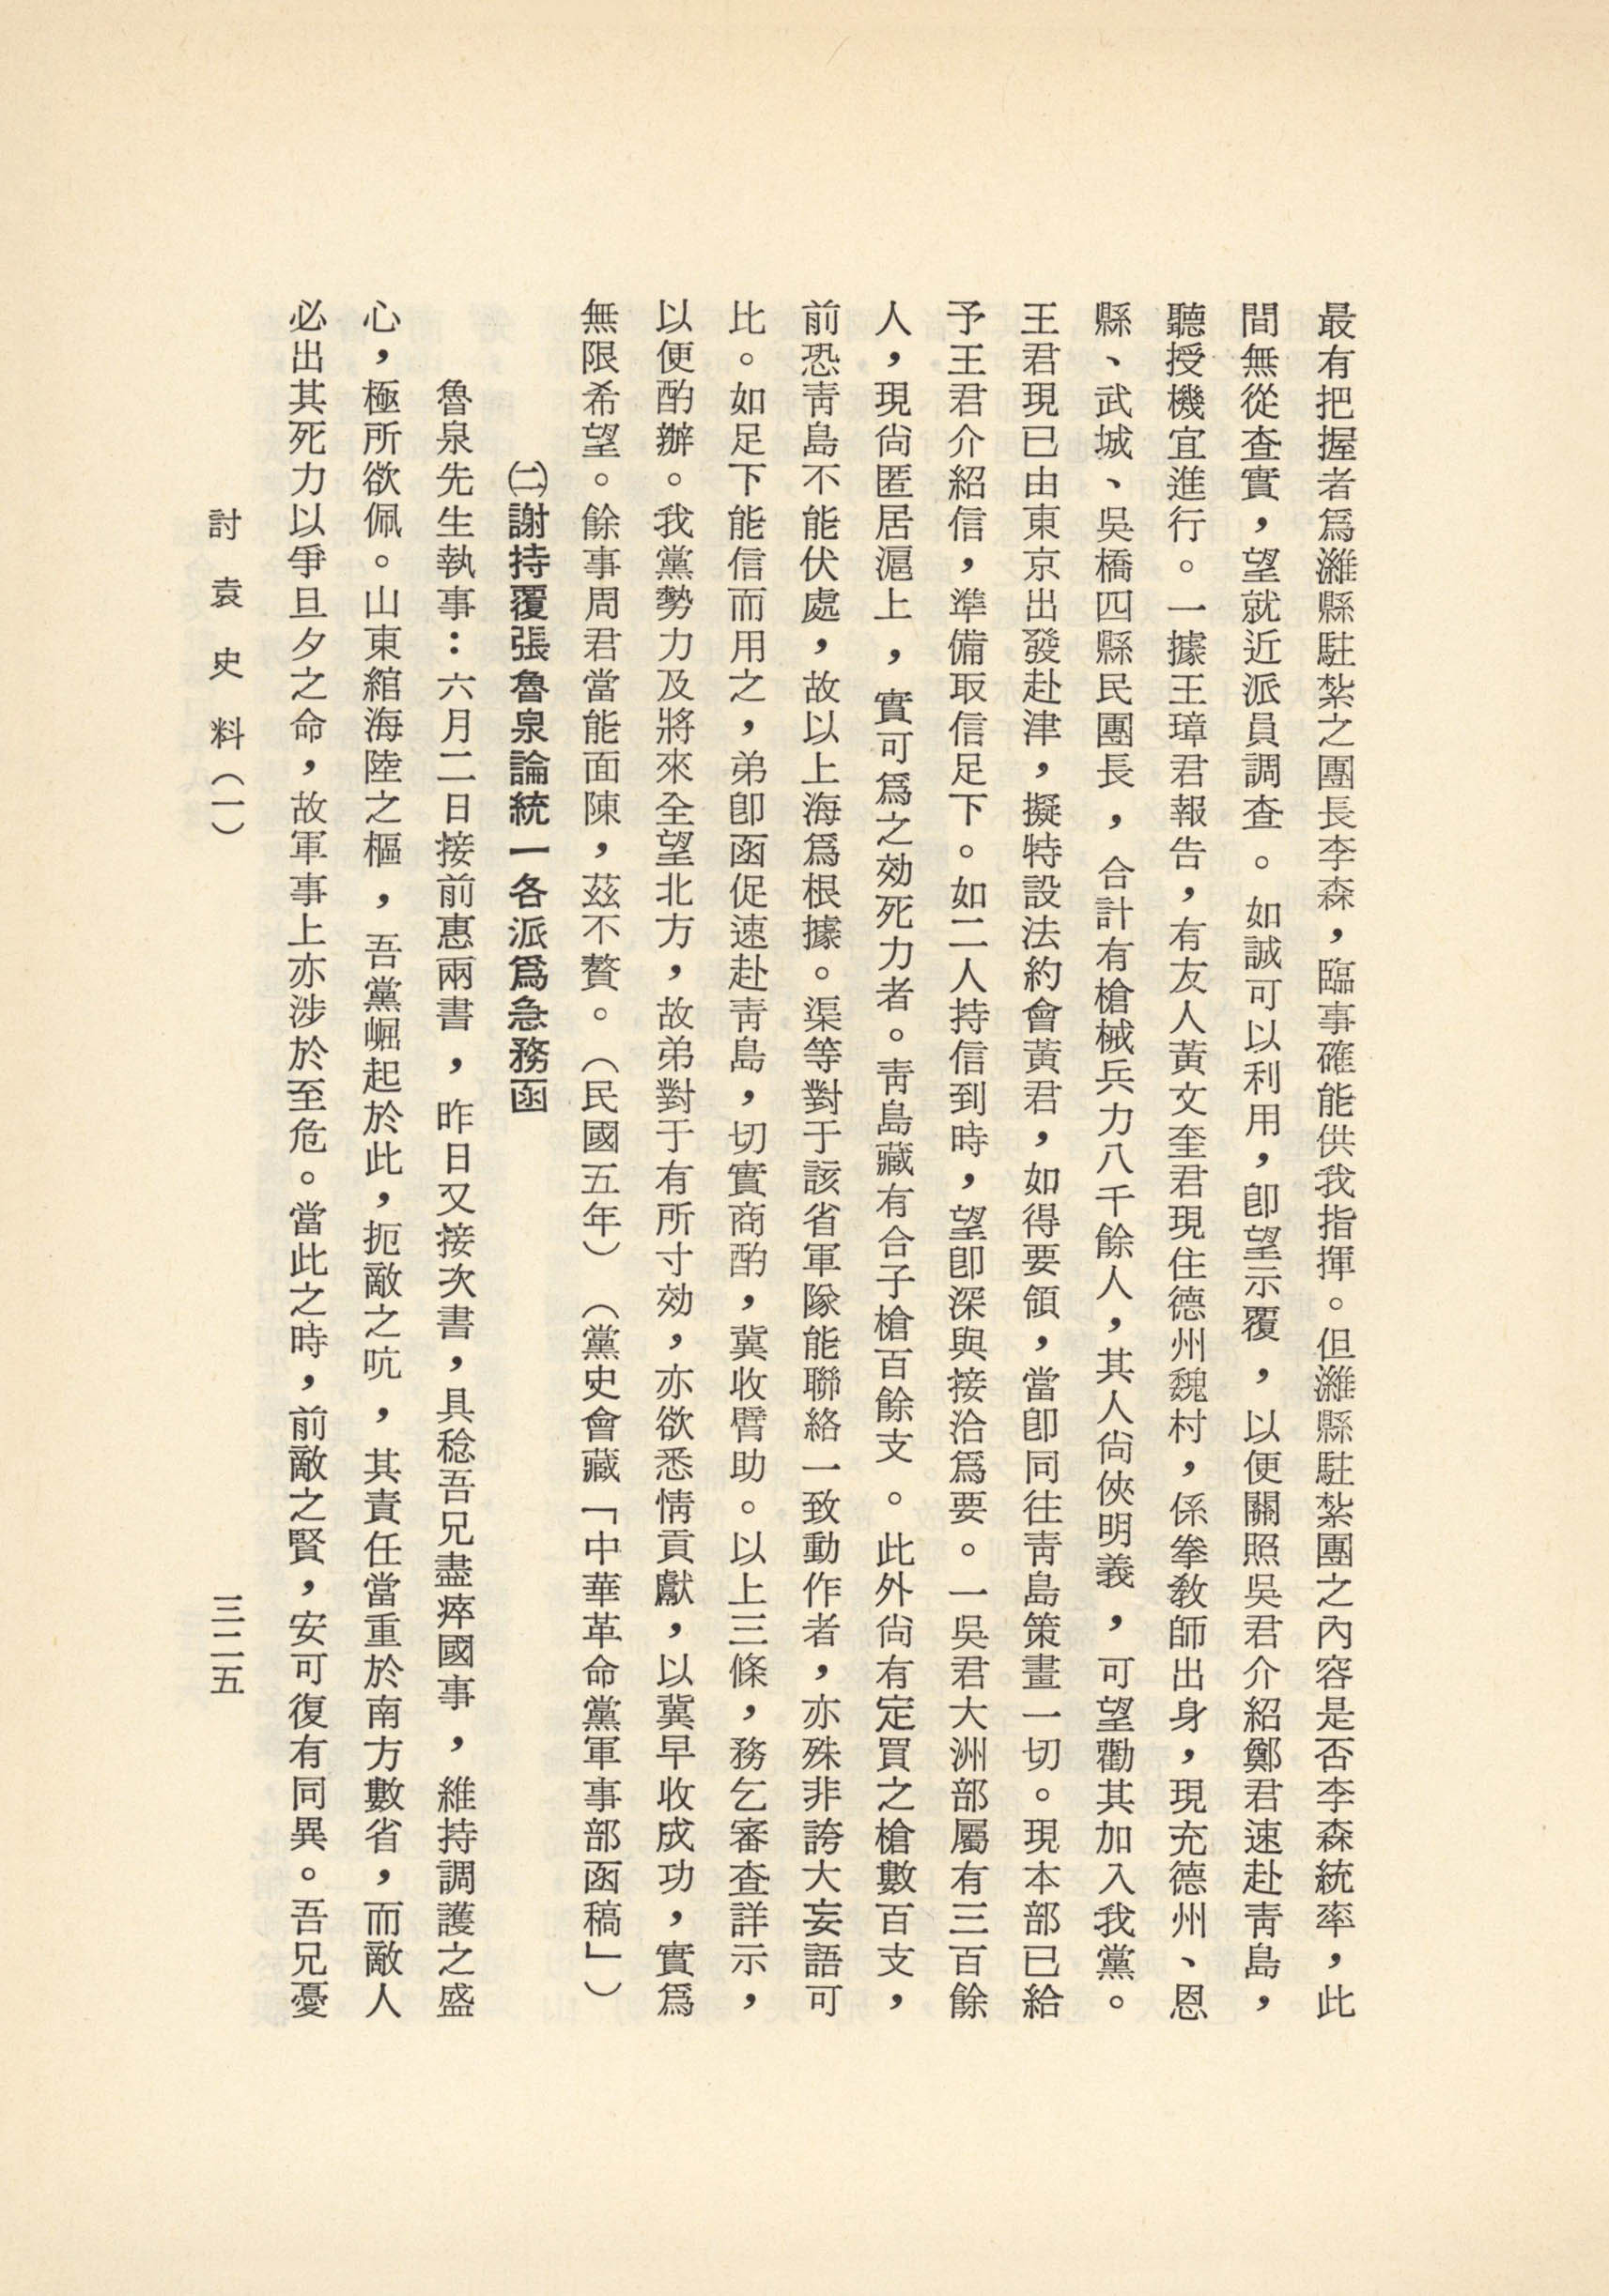 最有把握者爲濰縣駐紮之團長李森，臨事確能供我指揮。但濰縣駐紮團之內容是否李森統率，此
間無從查實，望就近派員調查。如誠可以利用，卽望示覆，以便關照吳君介紹鄭君速赴靑島，
聽授機宜進行。一據王璋君報告，有友人黃文奎君現住德州魏村，係拳敎師出身，現充德州、恩
縣、武城、吳橋四縣民團長，合計有槍械兵力八千餘人，其人尙俠明義，可望勸其加入我黨。
王君現已由東京出發赴津，擬特設法約會黃君，如得要領，當卽同往靑島策畫一切。現本部已給
予王君介紹信，準備取信足下。如二人持信到時，望卽深與接洽爲要。一吳君大洲部屬有三百餘
人，現尙匿居滬上，實可爲之効死力者。靑島藏有合子槍百餘支。此外尙有定買之槍數百支，
前恐靑島不能伏處，故以上海爲根據。渠等對于該省軍隊能聯絡一致動作者，亦殊非誇大妄語可
比。如足下能信而用之，弟卽函促速赴靑島，切實商酌，冀收臂助。以上三條，務乞審查詳示，
以便酌辦。我黨勢力及將來全望北方，故弟對于有所寸効，亦欲悉情貢獻，以冀早收成功，實爲
無限希望。餘事周君當能面陳，茲不贅。（民國五年）（黨史會藏「中華革命黨軍事部函稿」）
㈡謝持覆張魯泉論統一各派爲急務函
魯泉先生執事：六月二日接前惠兩書，昨日又接次書，具稔吾兄盡瘁國事，維持調護之盛
心，極所欲佩。山東綰海陸之樞，吾黨崛起於此，扼敵之吭，其責任當重於南方數省，而敵人
必出其死力以爭旦夕之命，故軍事上亦涉於至危。當此之時，前敵之賢，安可復有同異。吾兄憂
討袁史料（一）
三二五